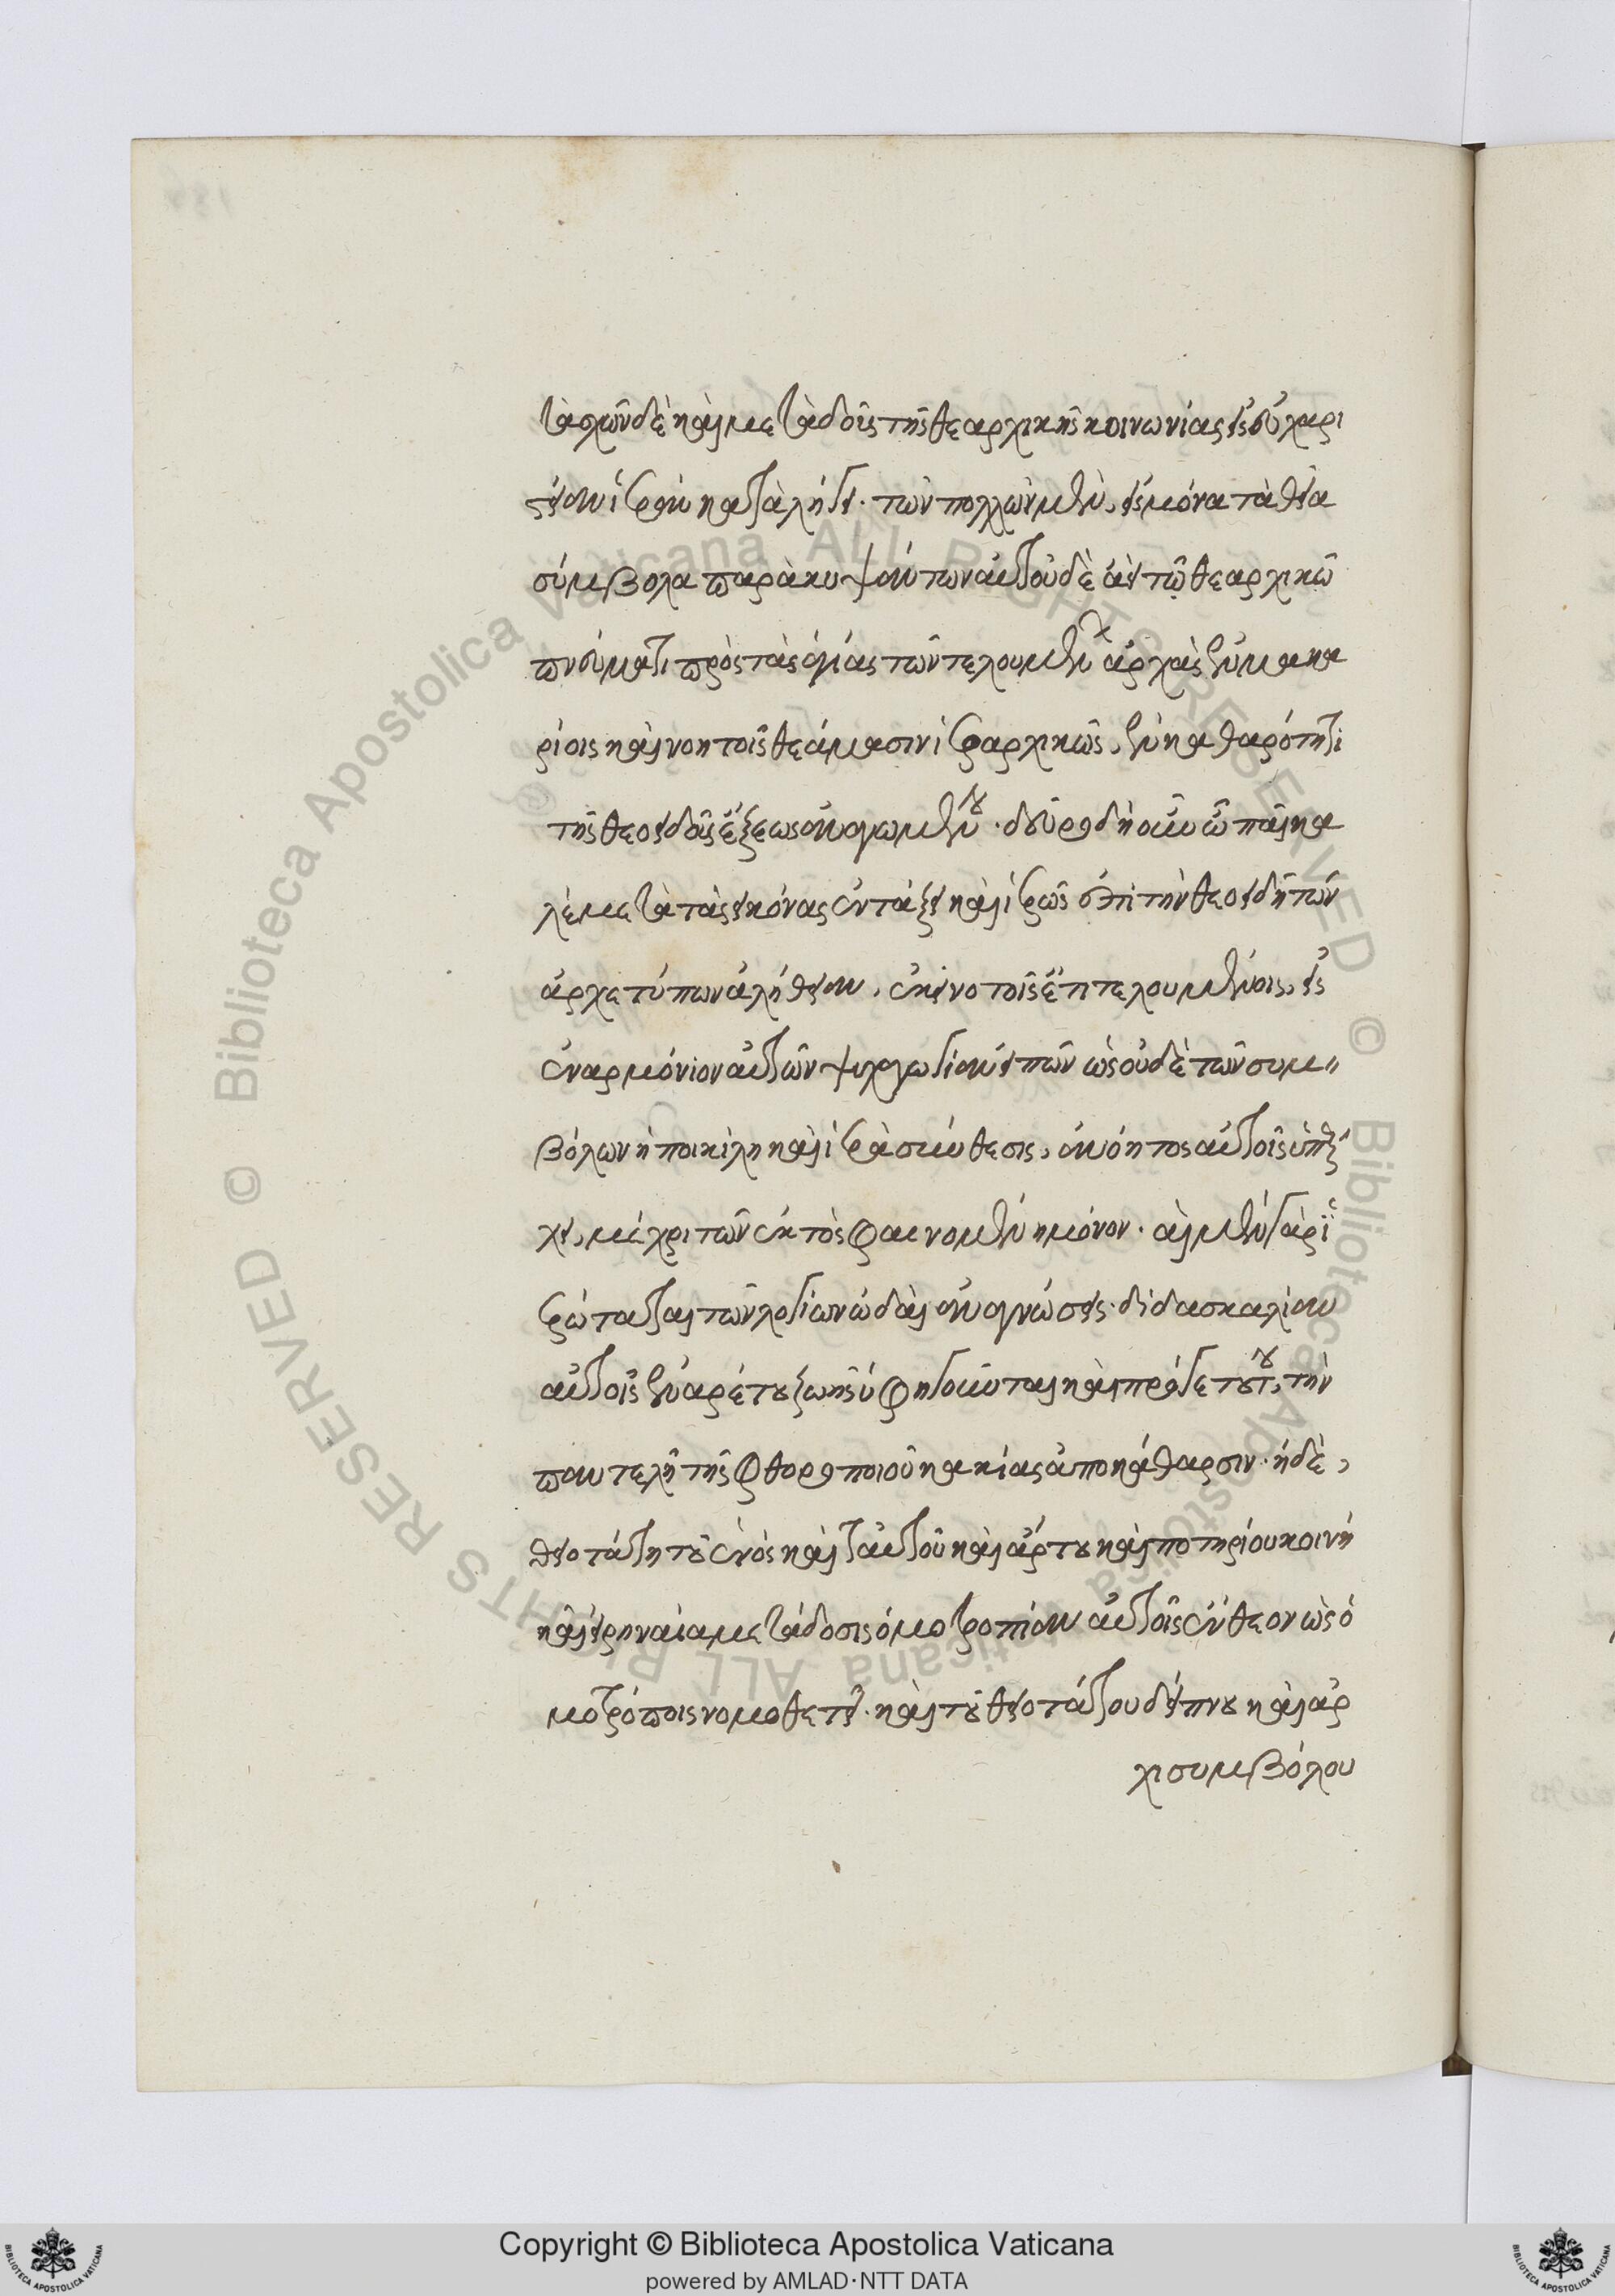 τασχὼν δὲ καὶ μεταδοὺς τῆς θεαρχικῆς κοινωνίας εἰς εὐχαρι
στείαν ἱερὰν καταλήγει. τῶν πολλῶν μὲν, εἰς μόνα τὰ θεῖα
σύμβολα παρακυψάντων αὐτοῦ δὲ ἀεὶ τῷ θεαρχικῷ
πνεύματι πρὸς τὰς ἁγίας τῶν τελουμένων ἀρχὰς ἐν μακα
ρίοις καὶ νοητοῖς θεάμασιν ἱεραρχικῶς, ἐν καθαρότητι
τῆς θεοειδοῦς ἕξεως ἀναγωμένου. δεῦρο δὴ οὖν ὦ παῖ κα
λὲ μετὰ τὰς εἰκόνας ἐν τάξει καὶ ἱερῶς ἐπὶ τὴν θεοειδῆ τῶν
ἀρχετύπων ἀλήθειαν, ἐκεῖνο τοῖς ἔτι τελουμένοις, εἰς
ἐναρμόνιον αὐτῶν ψυχαγωγίαν εἰπὼν ὡς οὐδὲ τῶν συμ
βόλων ἡ ποικίλη καὶ ἱερὰ σύνθεσις, ἀνόητος αὐτοῖς ὑπάρ
χει, μέχρι τῶν ἐκτὸς φαινομένη μόνον. αἱ μὲν γὰρ ἱε
ρώταται τῶν λογίων ᾠδαὶ ἀναγνώσεις. διδασκαλίαν
αὐτοῖς ἐναρέτου ζωῆς ὑφηγοῦνται καὶ πρό γε τούτου, τὴν
παντελῆ τῆς φθοροποιοῦ κακίας ἀποκάθαρσιν. ἡ δὲ,
θειοτάτη τοῦ ἑνὸς καὶ ταὐτοῦ καὶ ἄρτου καὶ ποτηρίου κοινὴ
καὶ εἰρηναία μετάδοσις ὁμοτροπίαν αὐτοῖς ἔνθεον ὡς ὁ
μοτρόποις νομοθετεῖ. καὶ τοῦ θειοτάτου δείπνου καὶ ἀρ
χισυμβόλου
Copyright © Biblioteca Apostolica Vaticana
powered by AMLAD·NTT DATA